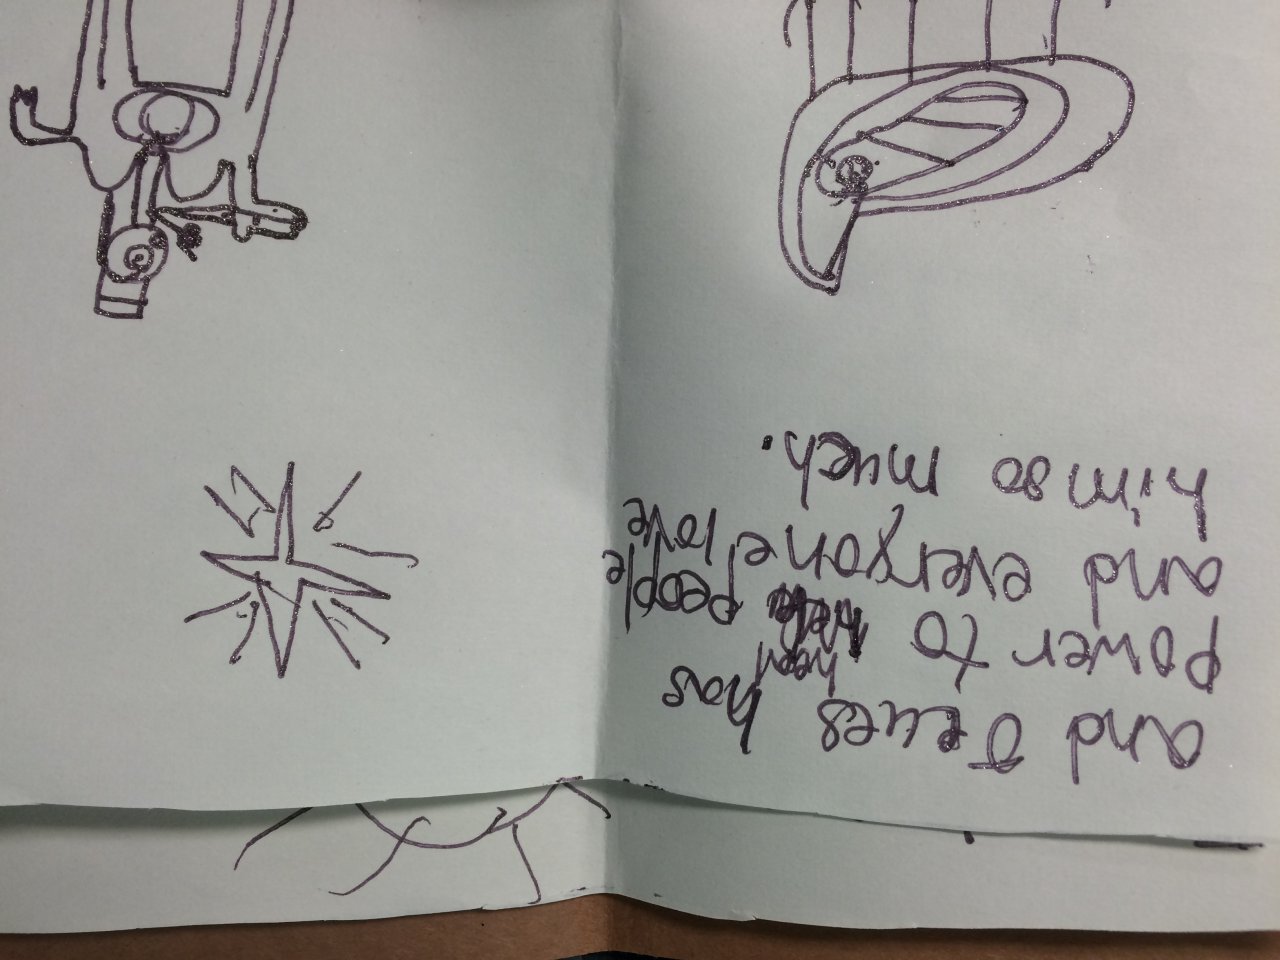 and Jeues has
power to heal people
and everyone love
him so much.